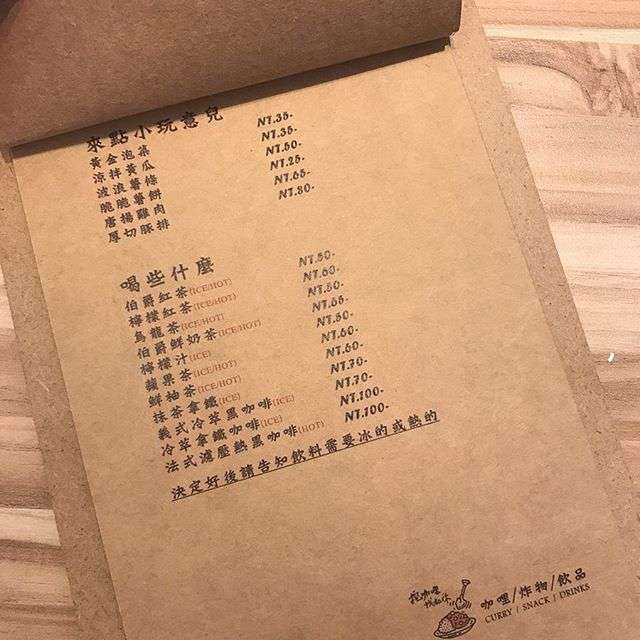 來點小玩意兒
黃金泡菜 NT.35-
涼拌黃瓜 NT.35-
波浪薯條 NT.50-
脆脆薯餅 NT.25-
唐揚雞肉 NT.65-
厚切豚排 NT.80-
喝些什麼
伯爵紅茶(ICE/HOT) NT.50-
檸檬紅茶(ICE/HOT) NT.60-
烏龍茶(ICE/HOT) NT.50-
伯爵鮮奶茶(ICE/HOT) NT.65-
檸檬汁(ICE) NT.50-
蘋果茶(ICE/HOT) NT.60-
鮮柚茶(ICE/HOT) NT.60-
抹茶拿鐵(ICE) NT.70-
義式冷萃黑咖啡(ICE) NT.70-
冷萃拿鐵咖啡(ICE) NT.100-
法式濾壓熱黑咖啡(HOT) NT.100-
決定好後請告知飲料需要冰的或熱的
咖哩/炸物/飲品
CURRY / SNACK / DRINKS